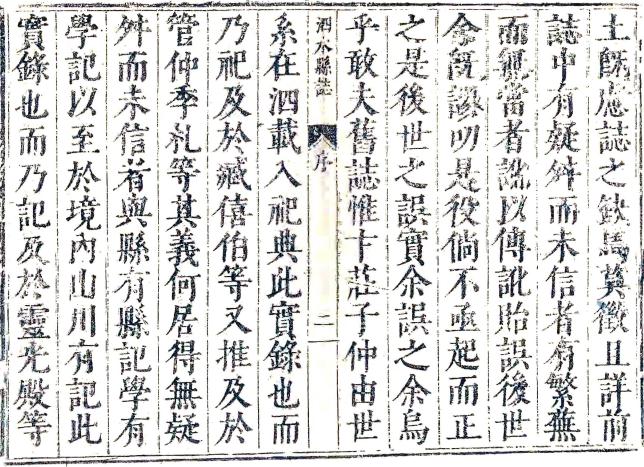 土既慮誌之缺焉莫徵且詳前
誌中有疑舛而未信者有繁蕪
而當者訛以傳訛貽誤後世
余既謬叨是役倘不亟起而正
之是後世之誤實余誤之余烏
乎敢夫舊誌惟卞莊子仲由世
泗水縣誌 序 二
系在泗載入祀典此實錄也而
乃祀及於臧僖伯等又推及於
管仲季札等其義何居得無疑
舛而未信者與縣有縣記學有
學記以至於境內山川有記此
實錄也而乃記及於靈光殿等